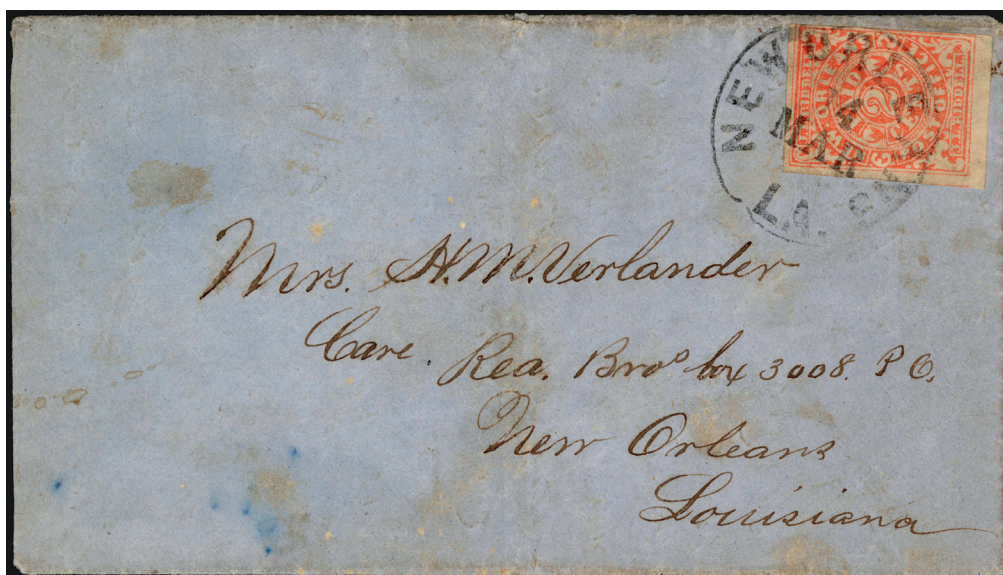 NEW
MAR
LA.
Mrs. H. M. Verlander
Care. Rea. Bro⁵ box 3008. P O.
New Orleans
Louisiana